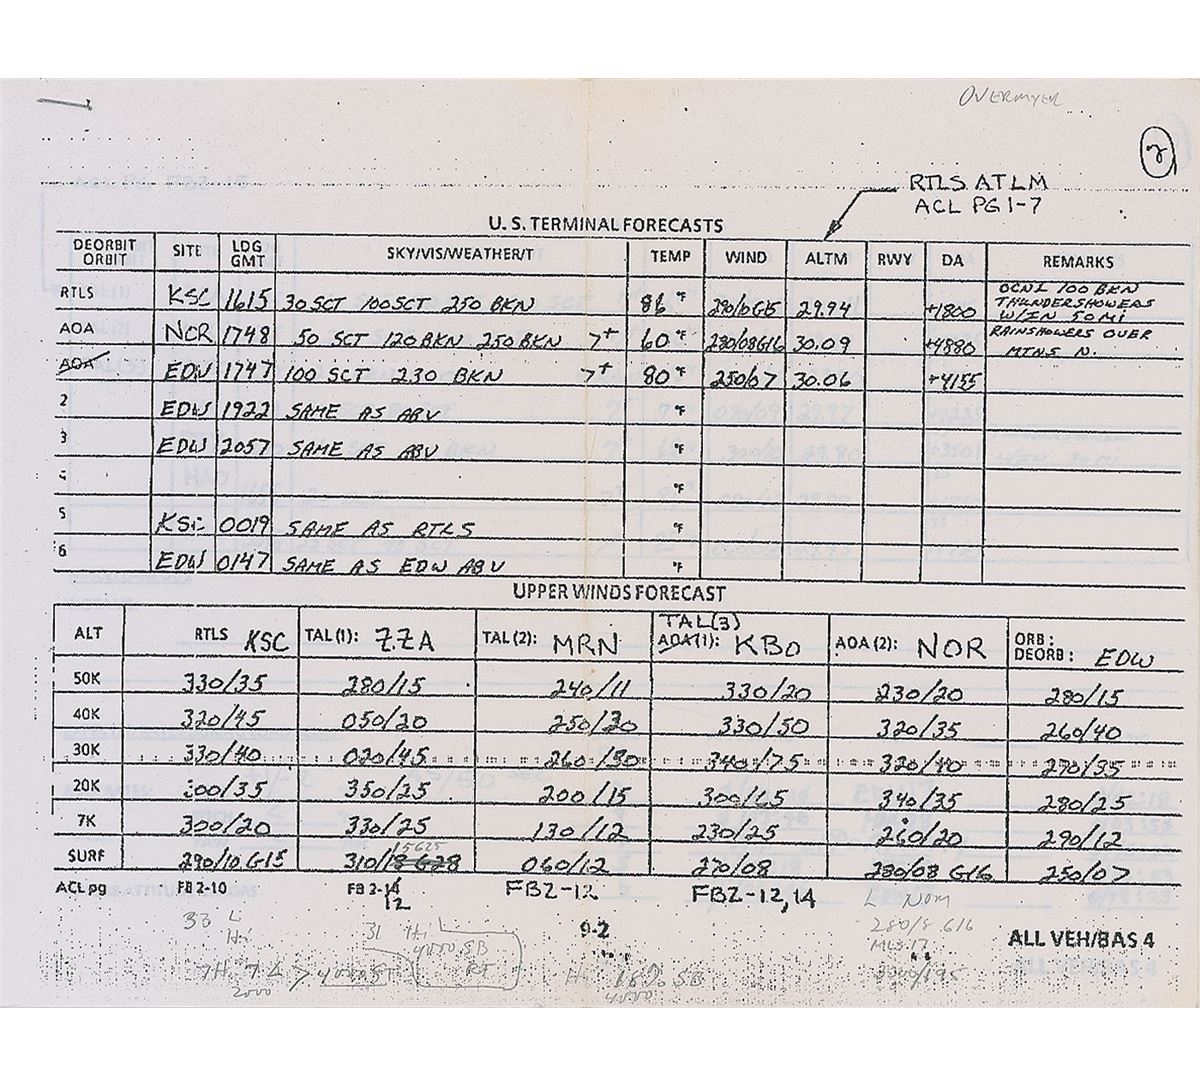 OVERMYER
2
RTLS ATLM
ACL PG 1-7
U.S. TERMINAL FORECASTS
DEORBIT ORBIT SITE LDG GMT SKY/VIS/WEATHER/T TEMP WIND ALTM RWY DA REMARKS
RTLS KSC 1615 30 SCT 100 SCT 250 BKN 86 °F 290/10G15 29.94 +1800 OCNL 100 BKN THUNDERSHOWERS W/IN 50 MI
AOA NOR 1748 50 SCT 120 BKN 250 BKN 7+ 60 °F 280/08G16 30.09 +4880 RAINSHOWERS OVER MTNS N.
AOA EDW 1747 100 SCT 230 BKN 7+ 80 °F 250/07 30.06 +4155
2 EDW 1922 SAME AS ABV °F
3 EDW 2057 SAME AS ABV °F
°F
5 KSC 0019 SAME AS RTLS °F
6 EDW 0147 SAME AS EDW ABV °F
UPPER WINDS FORECAST
ALT RTLS KSC TAL(1): ZZA TAL(2): MRN TAL(3) AOA(1): KBO AOA(2): NOR ORB: DEORB: EDW
50K 330/35 280/15 240/11 330/20 230/20 280/15
40K 320/45 050/20 250/30 330/50 320/35 260/40
30K 330/40 020/45 260/50 340/75 320/40 270/35
20K 300/35 350/25 200/15 300/65 340/35 280/25
7K 300/20 330/25 130/12 230/25 260/20 290/12
SURF 290/10 G15 310/18 G28 060/12 270/08 280/08 G16 250/07
ACL pg FB 2-10 FB 2-14 12 FB2-12 FB2-12,14 L NOM
33 L 31 Hi 9-2 280/8 G16
Hi 4000 SB MLS 17 ALL VEH/BAS 4
RT
2000 4000